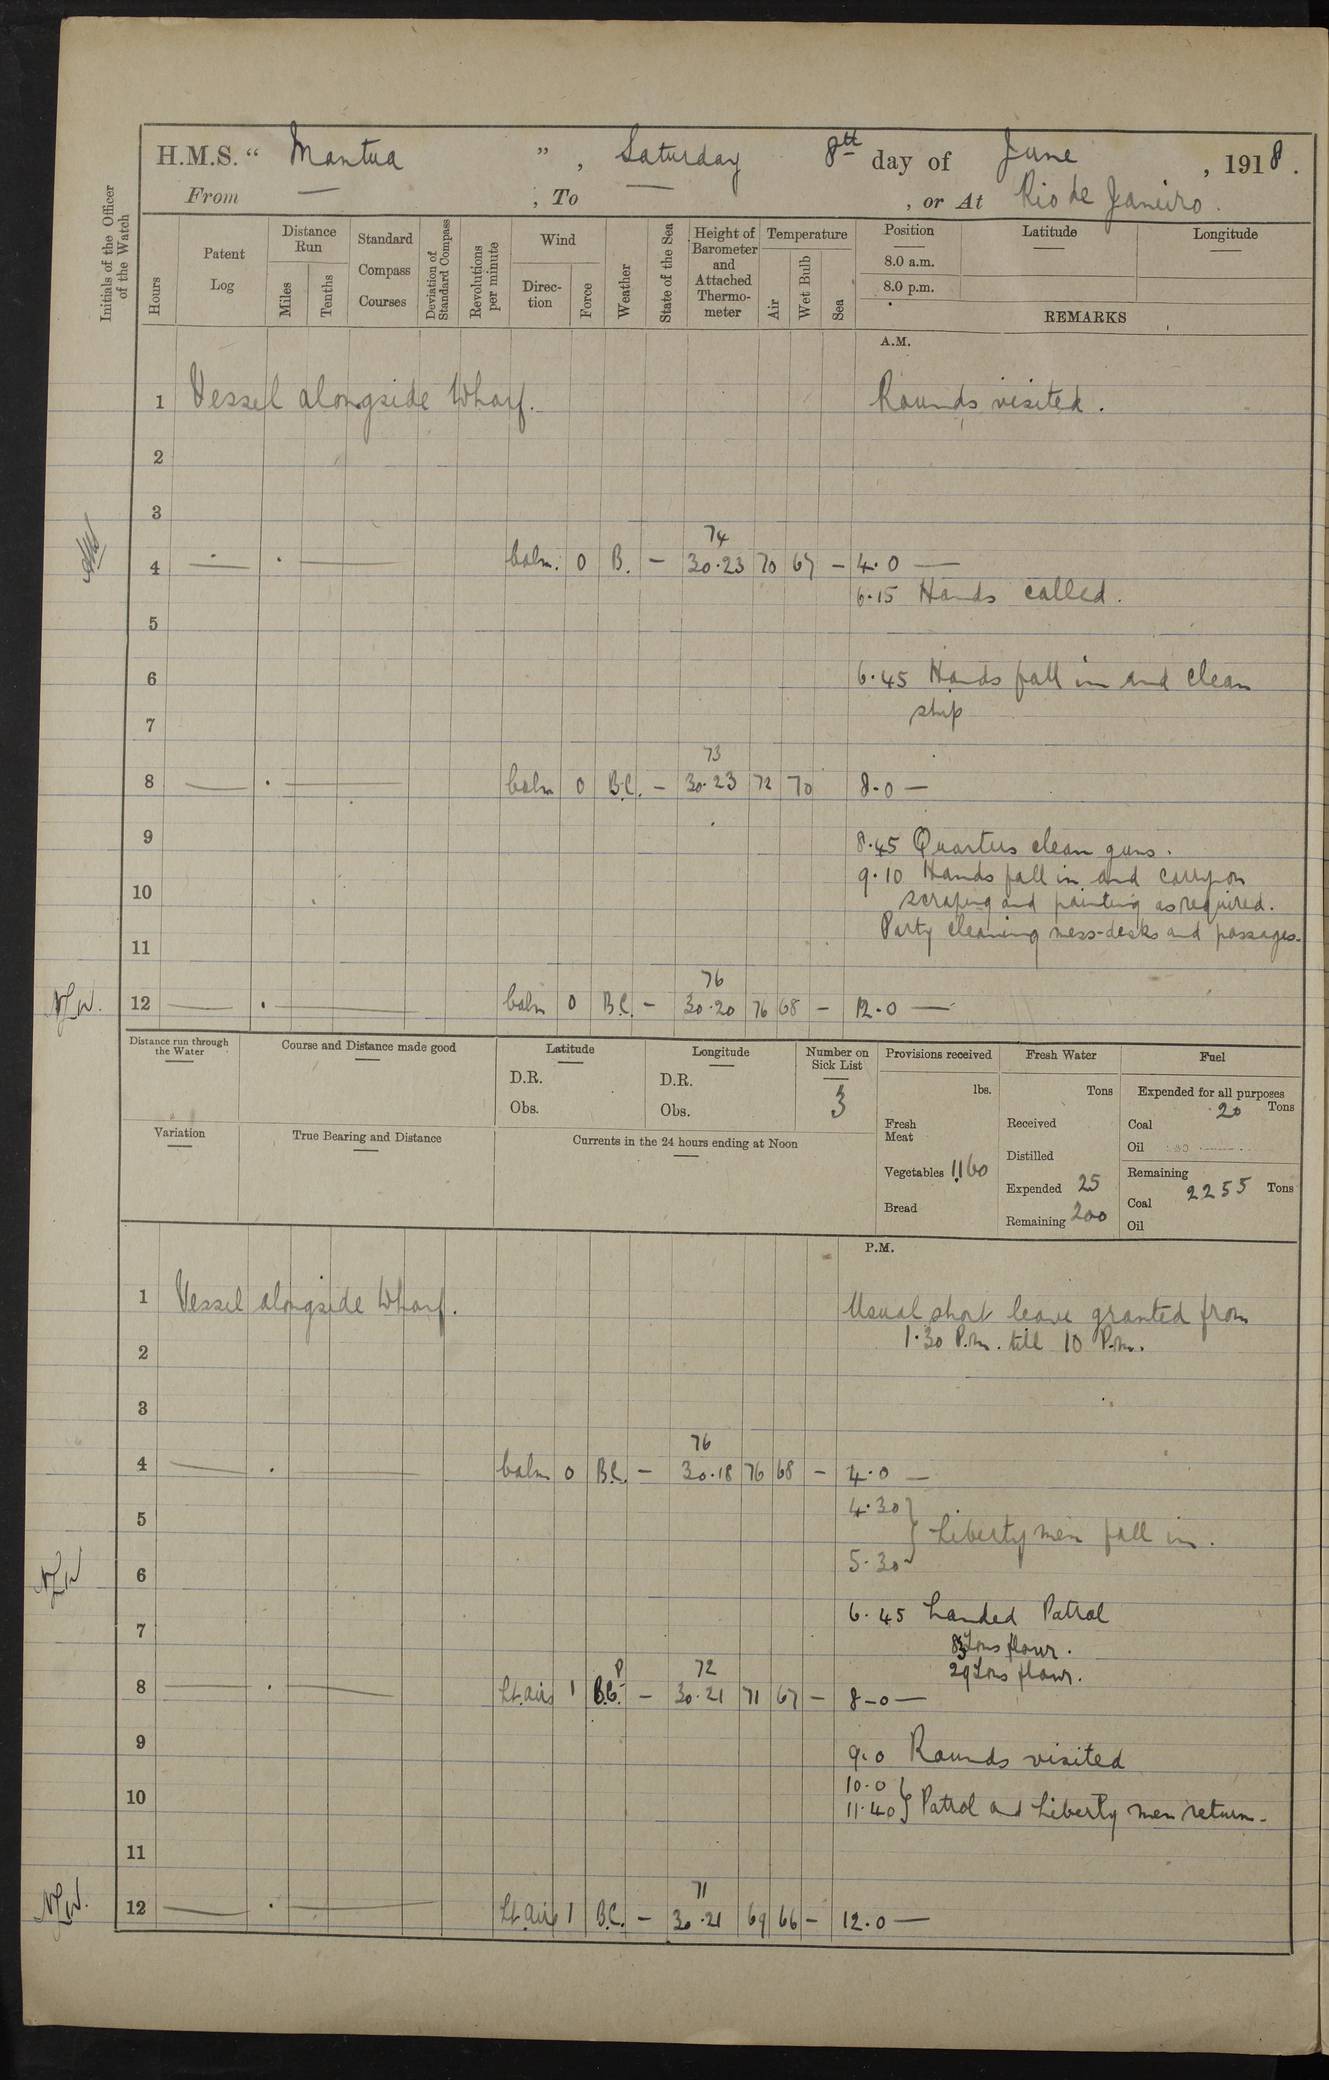 H.M.S. “ Mantua ” , Saturday 8th day of June , 1918 .
From — , To — , or At Rio de Janeiro .
Initials of the Officer of the Watch
Hours
Patent Log
Distance Run
Miles
Tenths
Standard Compass Courses
Deviation of Standard Compass
Revolutions per minute
Wind
Direction
Force
Weather
State of the Sea
Height of Barometer and Attached Thermometer
Temperature
Air
Wet Bulb
Sea
Position
Latitude
Longitude
8.0 a.m.
8.0 p.m.
REMARKS
A.M.
1 Vessel alongside Wharf. Rounds visited .
2
3
74
4 — . — Calm. 0 B. — 30.23 70 67 — 4.0 —
6.15 Hands called .
5
6 6.45 Hands fall in and clean
ship
7
73
8 — . — Calm 0 B.C. — 30.23 72 70 8.0 —
9 8.45 Quarters clean guns .
9.10 Hands fall in and carry on
10 scraping and painting as required.
Party cleaning mess-decks and passages.
11
76
N.L.W. 12 — . — Calm 0 B.C. — 30.20 76 68 — 12.0 —
Distance run through the Water
Course and Distance made good
Latitude
D.R.
Obs.
Longitude
D.R.
Obs.
Number on Sick List
3
Provisions received
lbs.
Fresh Meat
Vegetables 1160
Bread
Fresh Water
Tons
Received
Distilled
Expended 25
Remaining 200
Fuel
Expended for all purposes
Coal 20 Tons
Oil
Remaining
Coal 2255 Tons
Oil
Variation
True Bearing and Distance
Currents in the 24 hours ending at Noon
P.M.
1 Vessel alongside Wharf. Usual short leave granted from
1.30 P.m. till 10 P.m.
2
3
76
4 — . — Calm 0 B.C. — 30.18 76 68 — 4.0 —
4.30
5 Liberty men fall in .
5.30
N.L.W 6
6.45 Landed Patrol
7
tons flour .
29 Tons flour.
P 72
8 — . — Lt. airs 1 B.C. — 30.21 71 67 — 8-0 —
9 9.0 Rounds visited
10.0
10 11.40 Patrol and Liberty men return.
11
71
N.L.W. 12 — . — Lt. airs 1 B.C. — 30.21 69 66 — 12.0 —